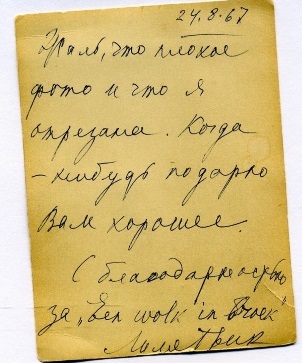 24.8.67
Жаль, что плохое
фото и что я
отрезана. Когда
-нибудь подарю
Вам хорошее.
С благодарностью
за „Een wolk in Broek"
Лиля Брик